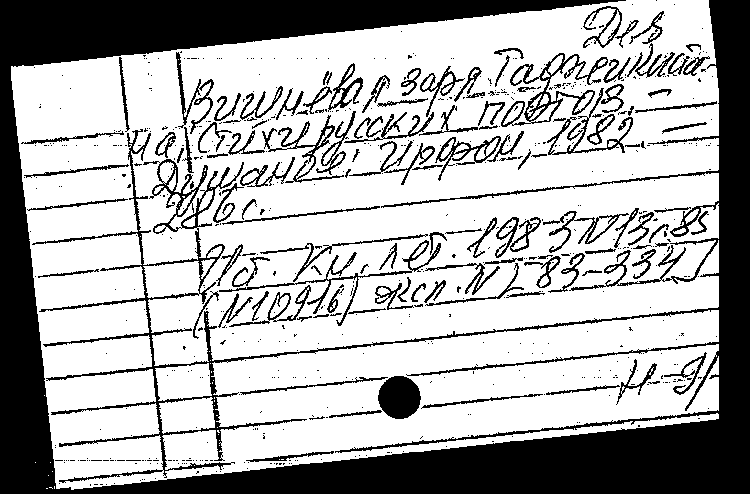 Деж
Вишнёвая заря Таджикиста-
на: Стихи русских поэтов. —
Душанбе: Ирфон, 1982. —
286 с.
Кн. лет. 1983 N13 с.85
(N10916) экс. N [83-334]